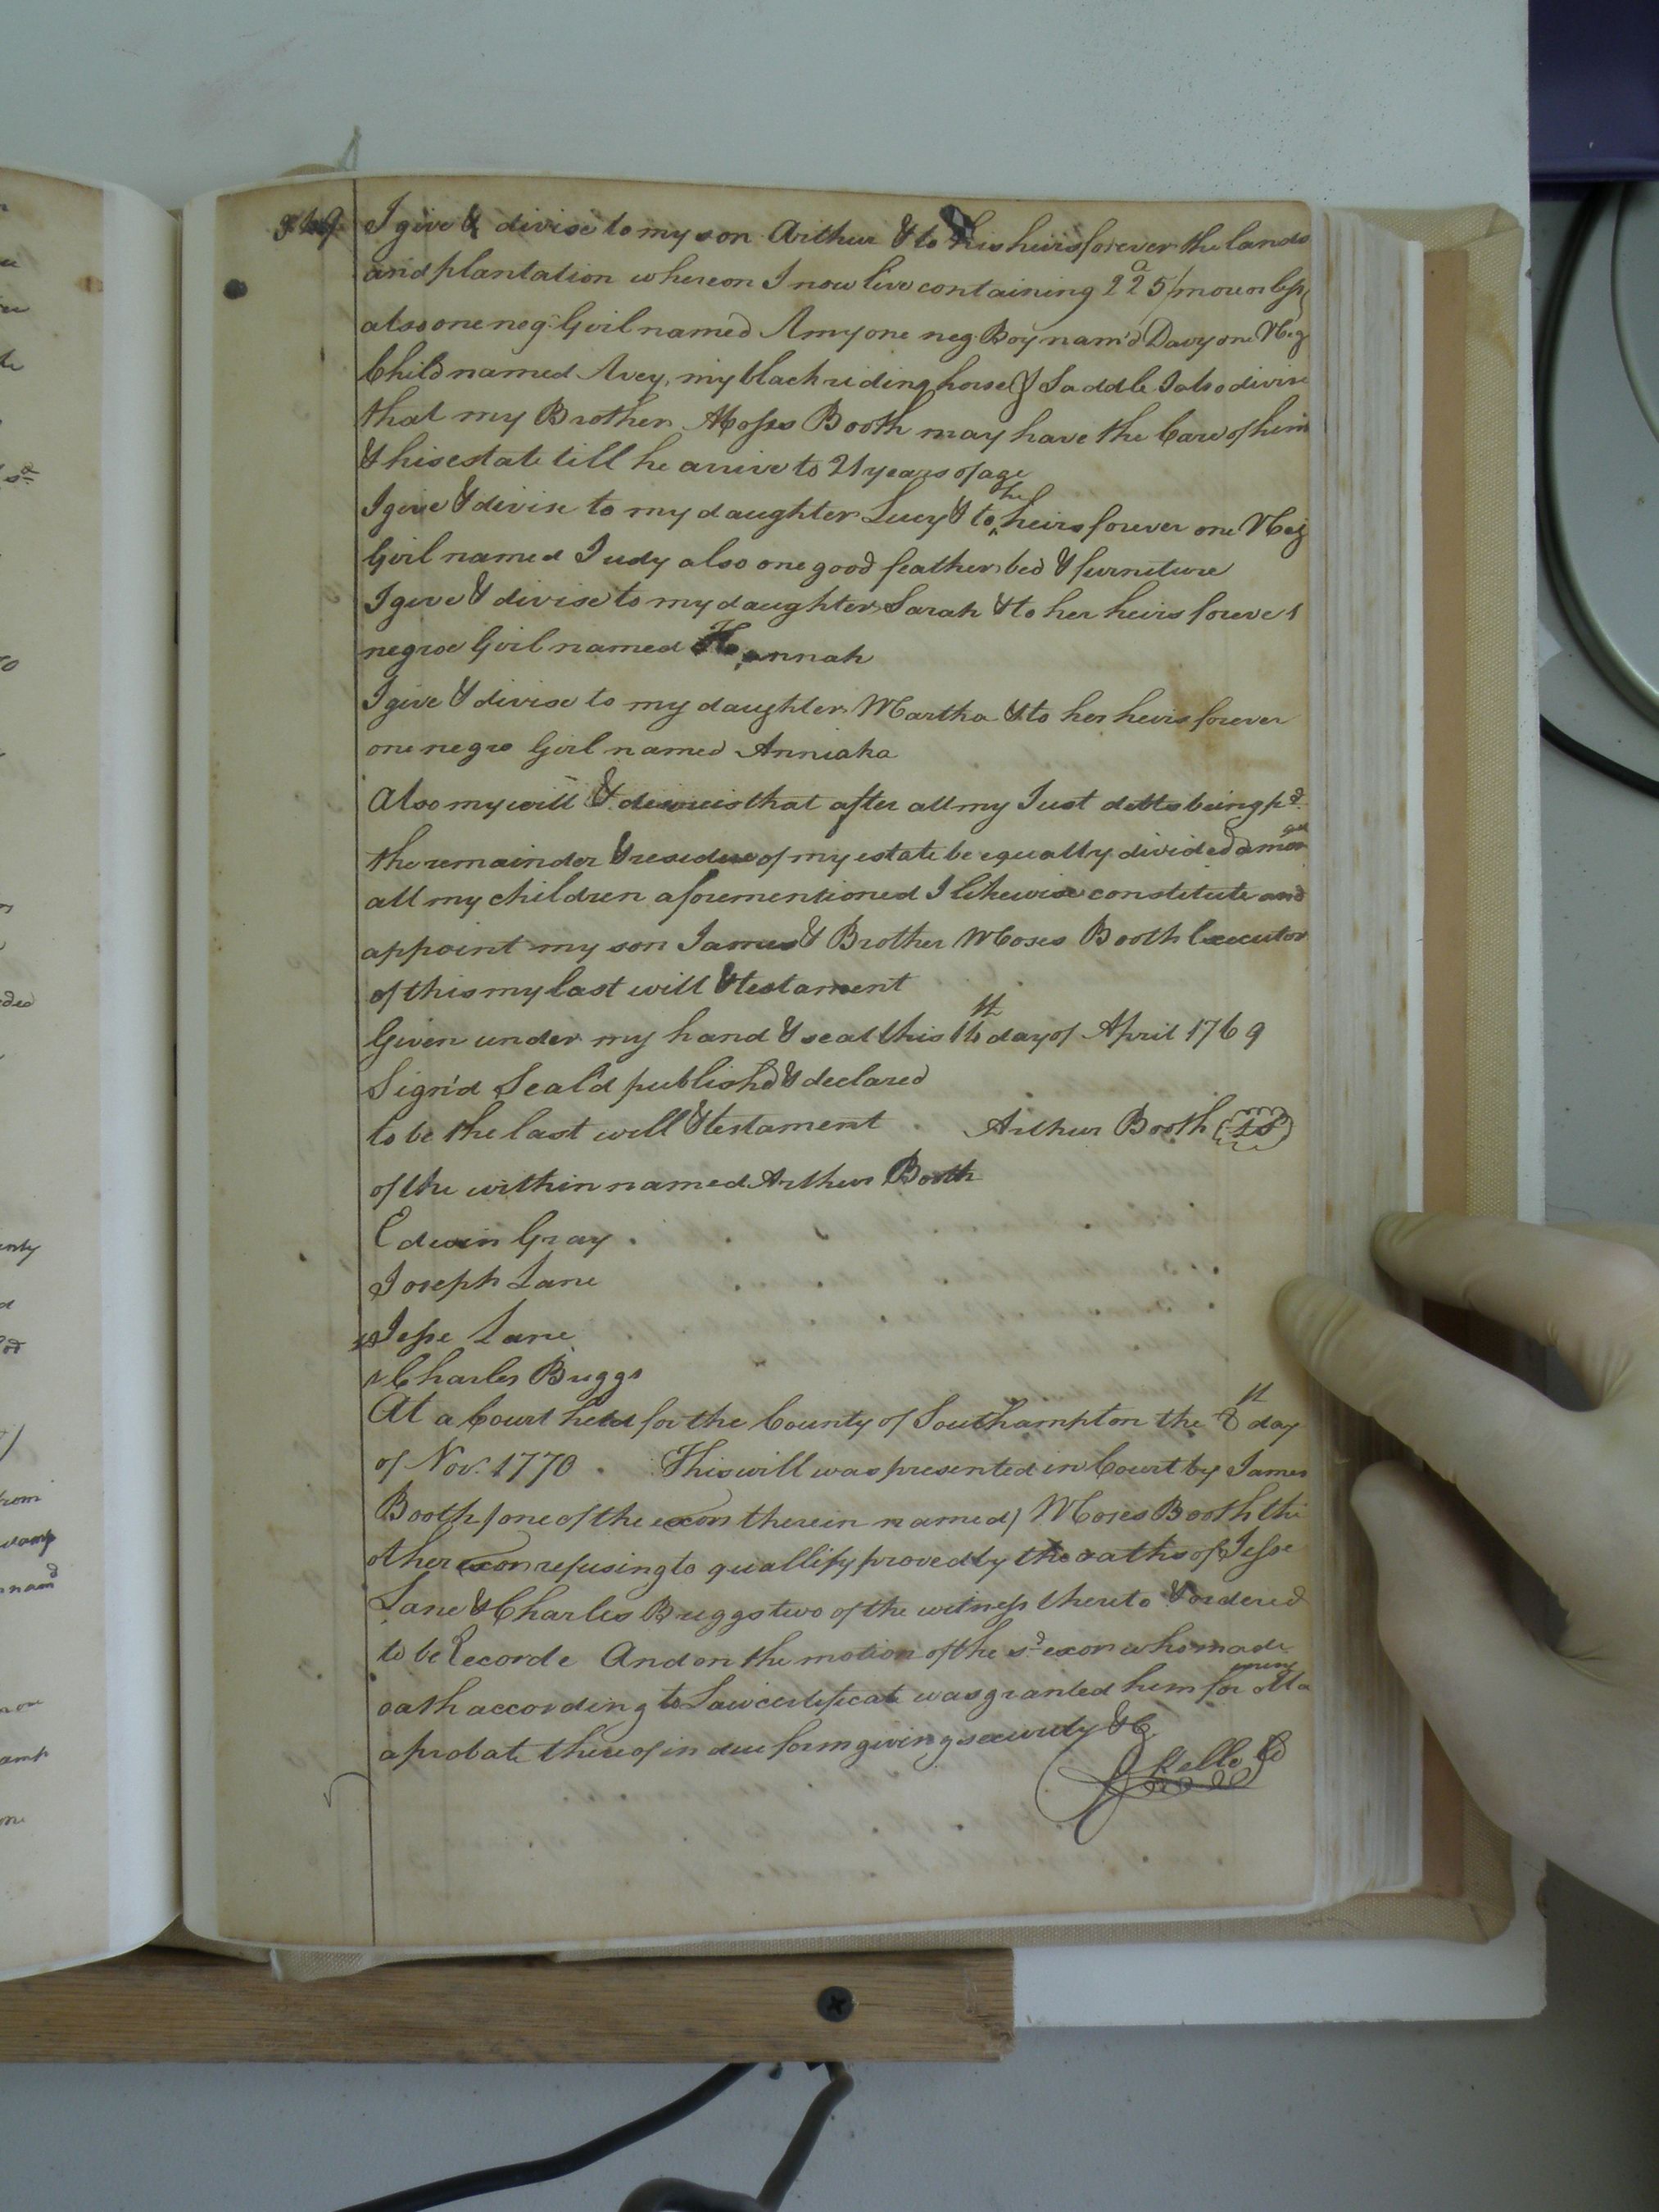 I give & divise to my son Arthur & to his heirs forever the lands
and plantation whereon I now live containing 225a / more or less /
also one neg Girl named Amy one neg. Boy nam'd Davy one Neg
Child named Avey, my black riding horse & Saddle I also divise
that my Brother Moses Booth may have the Care of him
& his estate till he arrive to 21 years of age
I give & divise to my daughter Lucy & to her heirs forever one Neg
Girl named Judy also one good feather bed & furniture
I give & divise to my daughter Sarah & to her heirs foreve 1
negroe Girl named Hannah
I give & divise to my daughter Martha & to her heirs forever
one negro Girl named Anniaka
Also my will & that after all my Just debts being pd.
the remainder & residue of my estate be equally divided among
all my children aforementioned I likewise constitute and
appoint my son James & Brother Moses Booth Executors
of this my last will & testament
Given under my hand & seal this 16th day of April 1769
Sign'd Seal'd publishd & declared
to be the last will & testament Arthur Booth (LS)
of the within named Arthur Booth
Edwin Gray.
Joseph Lane
Jesse Lane
Charles Buggs
At a Court held for the County of Southampton the 8th day
of Nov. 1770. This will was presented in Court by James
Booth / one of the exors therein named / Moses Booth the
other exor refusing to quallify proved by the oaths of Jesse
Lane & Charles Buggs two of the witness thereto & ordered
to be Recorde And on the motion of the sd. exor who made
oath according to Law certificate was granted him for
a probate thereof in due form giving security &c
Kello Cl